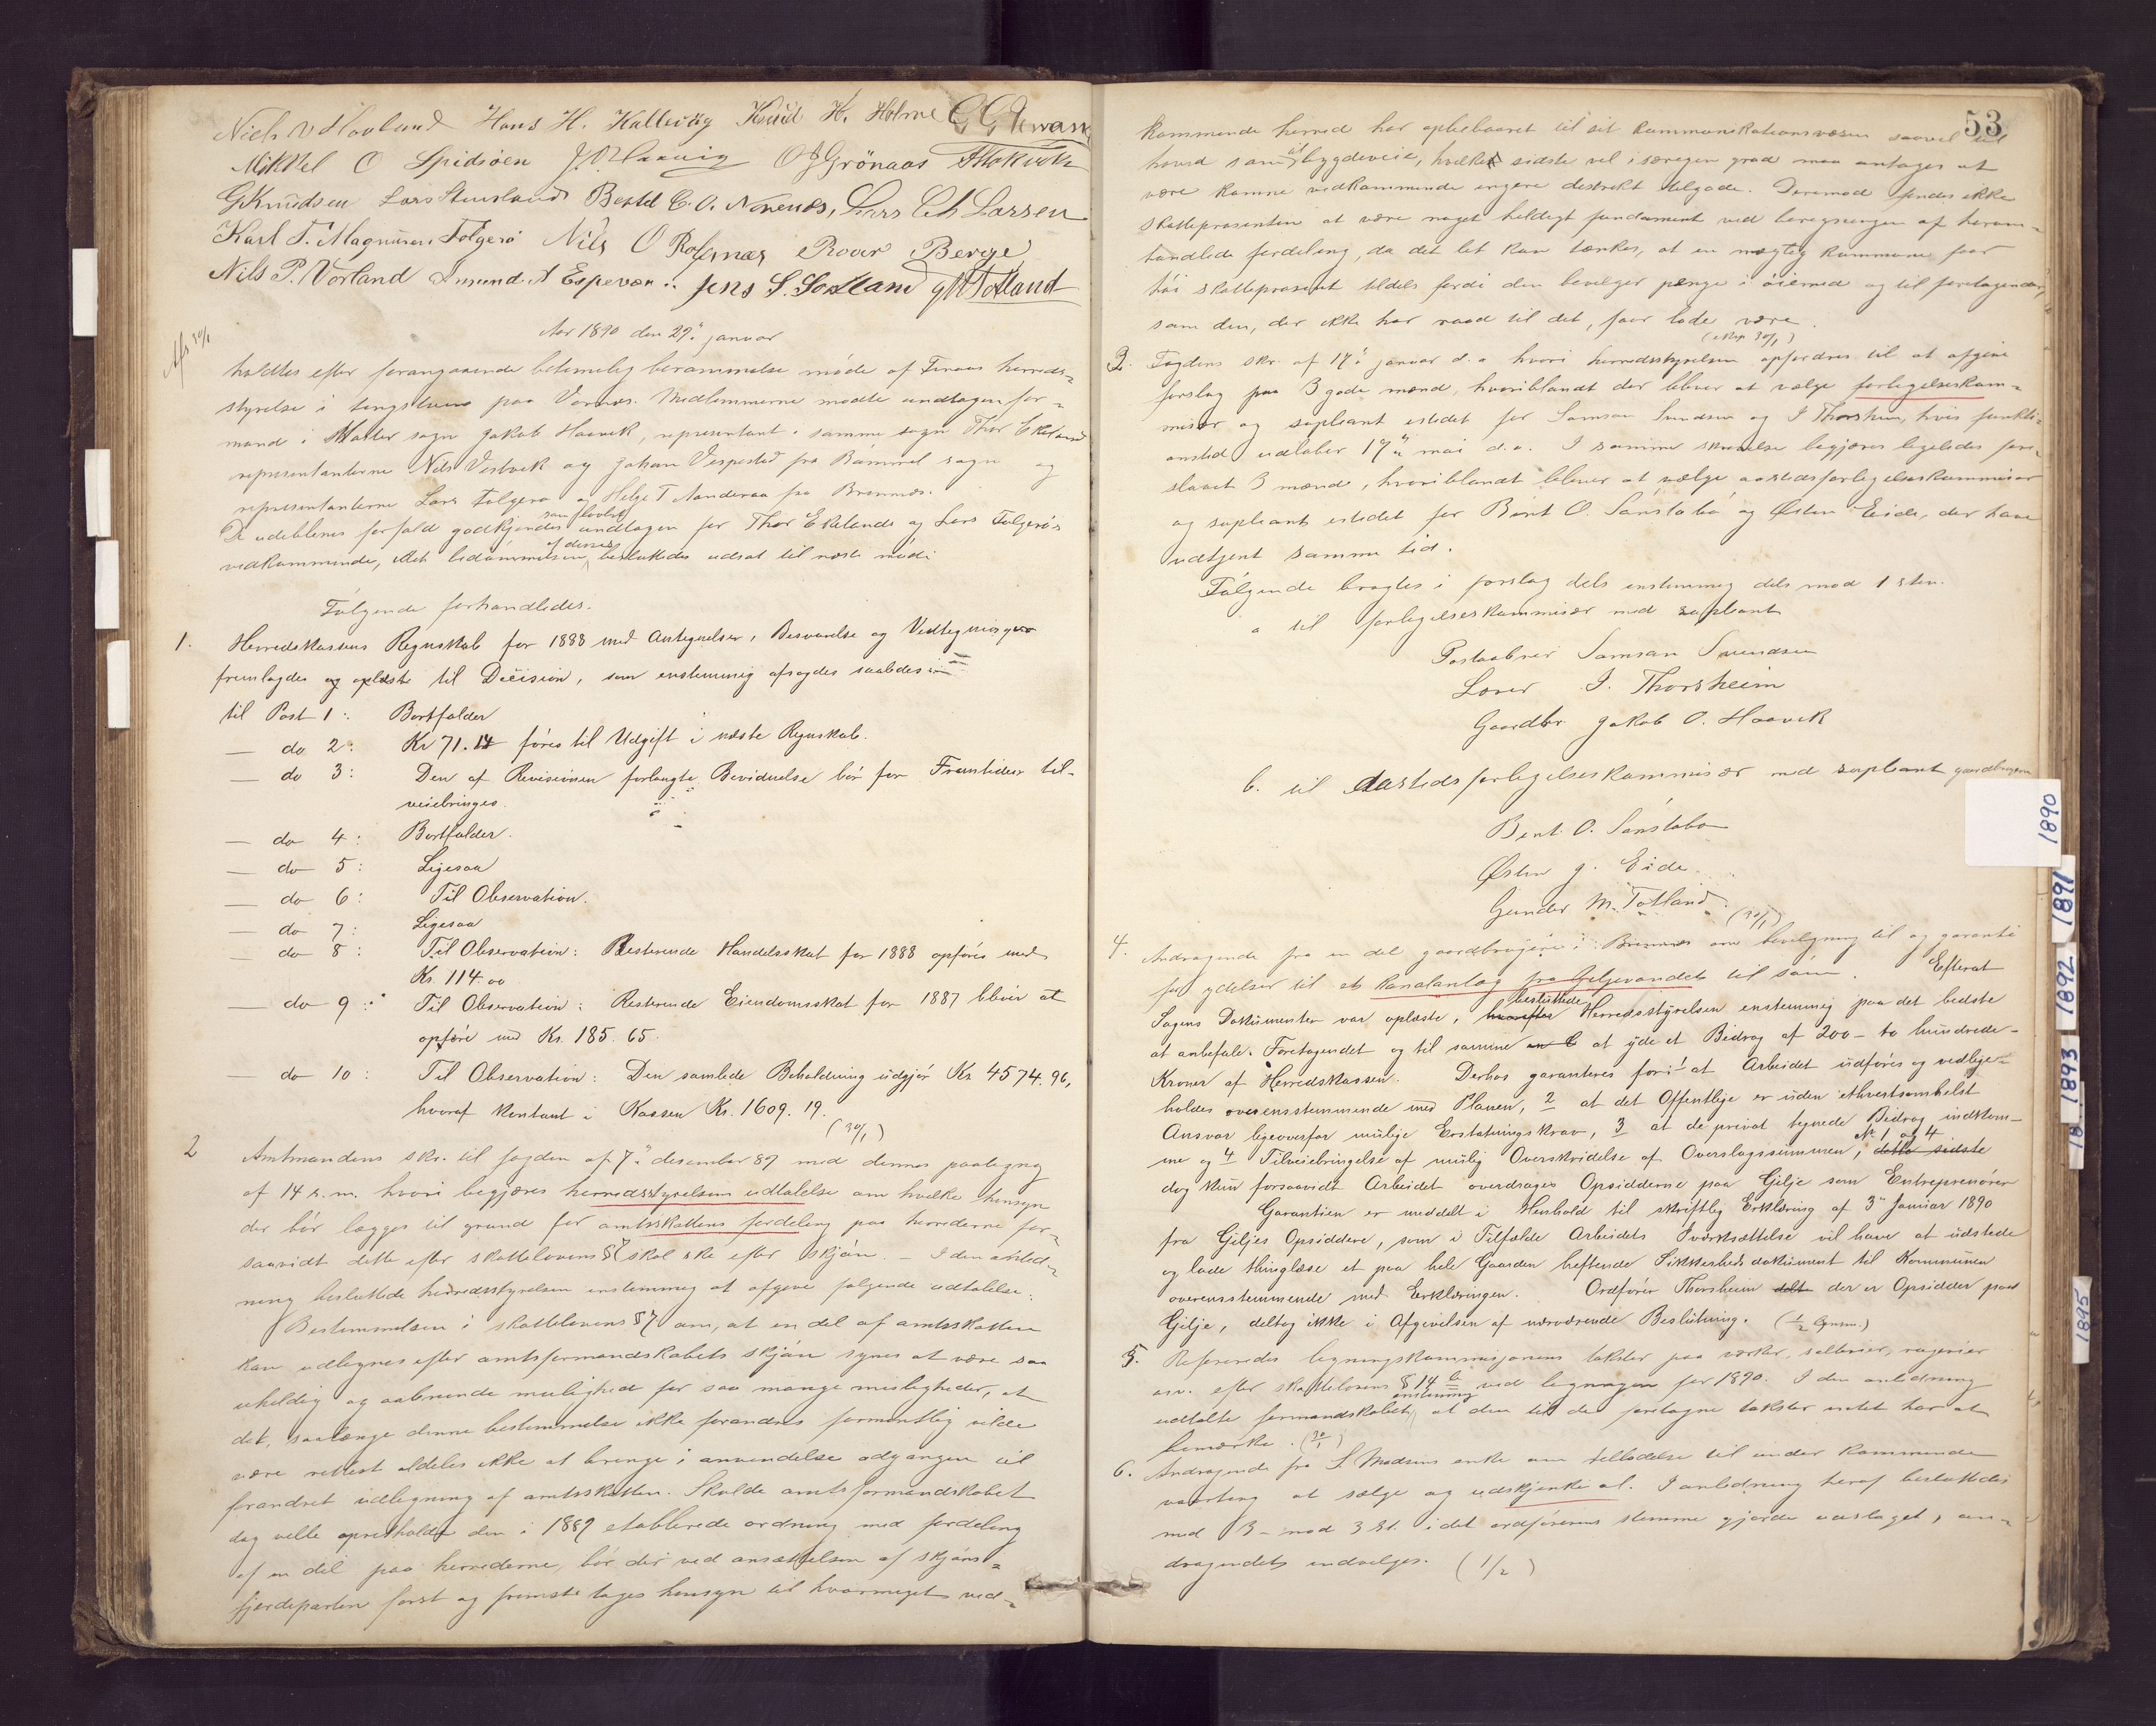 Niels V Hovland Hans H. Kallevåg Knud K. Holme
Mikkel O Spidsöen O J Grönaas
G Knudsen Lars Stusland Bertel C. O. Nonenes, Lars Ch Larsen
Karl T. Magnusen Folgerö Nils O Rolfsnæs Roar Berge
Nils P. Vorland Amund A Espevær Jens S. Sortland G M Totland
Afs 30/1
Aar 1890 den 29: januar
holdtes efter forangaaende betimelig berammelse møde af Finaas herreds-
styrelse i tingstuen paa Vornes. Medlemmerne mødte undtagen for-
mand i Moster sogn Jakob Haavik, representant i samme sogn Thor Ekeland
representanterne Nils Vestvik og Johan Vespested fra Bømmel sogn og
representanterne Lars Folgerø og Helge T Nanderaa fra Bremnes.
De udeblevnes forfald godkjendes som lovligt undtagen for Thor Ekelands og Lars Folgerøs
vedkommende, idet bedømmelsen af disses besluttedes udsat til næste møde
Følgende forhandledes.
1. Herredskassens Regnskab for 1888 med Antegnelser, Besvarelse og Vedtegninger
fremlagdes og oplæste til Decision, som enstemmig afsagdes saaledes:
til Post 1: Bortfalder
— do 2: Kr 71.14 føres til Udgift i næste Regnskab.
— do 3: Den af Revisionen forlangte Bevidnelse bør for Fremtiden til-
veiebringes.
— do 4: Bortfalder.
— do 5: Ligesaa
— do 6: Til Observation.
— do 7: Ligesaa
— do 8: Til Observation: Resterende Handelsskat for 1888 opføres med
Kr. 114.00
— do 9: Til Observation: Resterende Eiendomsskat for 1887 bliver at
opføre med Kr. 185.65.
— do 10: Til Observation: Den samlede Beholdning udgjør Kr 4574.96,
hvoraf kontant i Kassen Kr. 1609.19.
(30/1)
2 Amtmandens skr. til fogden af 7: desember 89 med dennes paategng
af 14 s.m. hvori begjæres herredsstyrelsens udtalelse om hvilke hensyn
der bør lægges til grund for amtsskattens fordeling paa herrederne for-
saavidt dette efter skattelovens § 7 skal ske efter skjøn. – I den anled-
ning besluttede herredsstyrelsen enstemmig at afgive følgende udtalelse:
Bestemmelsen i skattelovens § 7 om, at en del af amtsskatten
kan udlignes efter amtsformandskabets skjøn synes at være saa
uheldig og aabnende mulighed for saa mange misligheder, at
det, saalænge denne bestemmelse ikke forandres formentlig vilde
være rettest aldeles ikke at bringe i anvendelse adgangen til
forandret udligning af amtsskatten. Skulde amtsformandskabet
dog ville opretholde den i 1889 etablerede ordning med fordeling
af en del paa herrederne, bør der ved ansættelsen af skjøns-
fjerdeparten først og fremst tages hensyn til hvormeget ved-
53
kommende herred har opebaaret til sit kommunikationsvæsen saavel til
hoved som til bygdeveie, hvilket sidste vel i særegen grad maa antages at
være komne vedkommende engere distrikt tilgode. Derimod findes ikke
skatteprosenten at være noget heldigt fundament ved beregningen af herom-
handlede fordeling, da det let kan tænkes, at en mægtig kommune faar
høi skatteprosent tildels fordi den bevilger penge i øiemed og til foretagender,
som den, der ikke har raad til det, faar lade være.
(eksp 30/1)
3. Fogdens skr. af 17: januar d.a. hvori herredsstyrelsen opfordres til at afgive
forslag paa 3 gode mænd, hvoriblandt der bliver at vælge forligelseskom-
misær og supleant istedet for Samson Svendsen og I Thorsheim, hvis funkti-
onstid udløber 17: mai d.a. I samme skrivelse begjæres ligeledes fore-
slaaet 3 mænd, hvoriblandt bliver at vælge aastedsforligelseskommisær
og supleant istedet for Bernt O. Sønstabø og Østen Eide, der have
udtjent samme tid.
Følgende bragtes i forslag dels enstemmig dels mod 1 stem.
a til forligelseskommisær med supleant
Postaabner Samson Svendsen
Lærer I. Thorsheim
Gaardbr Jakob O. Haavik
b. til Aastedsforligelseskommisær med supleant gaardbrugerne
Bernt O. Sønstabø
Østen J. Eide
Gunder M. Totland.
(30/1)
4. Andragende fra en del gaardbrugere i Bremnes om bevilgning til og garanti
for ydelser til et kanalanlæg fra Giljevandet til søen. Efterat
Sagens Dokumenter var oplæste, hvorefter besluttede Herredsstyrelsen enstemmig paa det bedste
at anbefale Foretagendet og til samme at yde et Bidrag af 200 – to hundrede –
Kroner af Herredskassen. Derhos garanteres for: 1 at Arbeidet udføres og vedlige-
holdes overensstemmende med Planen, 2 at det Offentlige er uden ethvertsomhelst
Ansvar ligeoverfor mulige Erstatningskrav, 3 at de privat tegnede Bidrag indkom-
me og 4 Tilveiebringelse af mulig Overskridelse af Overslagssummen, detto sidste No 1 og 4
dog kun forsaavidt Arbeidet overdrages Opsidderne paa Gilje som Entreprenører
Garantien er meddelt i Henhold til skriftlig Erklæring af 3" Januar 1890
fra Giljes Opsiddere, som i Tilfælde Arbeidets Iværksættelse vil have at udstede
og lade thinglæse et paa hele Gaarden heftende Sikkerhedsdokument til Kommunen
overensstemmende med Erklæringen. Ordfører Thorsheim delt der er Opsidder paa
Gilje, deltog ikke i Afgivelsen af nærværende Beslutning. (1/2 Gjensn.)
5. Refereredes ligningskommisjonens takster paa værker, salterier, rogerier
osv. efter skattelovens § 14 b ved ligningen for 1890. I den anledning
udtalte formandskabet enstemmig at den til de foretagne takster intet har at
bemærke. (30/1)
6. Andragende fra S. Madsens enke om tilladelse til under kommende
vaarting at sælge og udskjenke øl. I anledning heraf besluttedes
med 3 – mod 3 St. idet ordførerens stemme gjorde udslaget, an-
dragendet indvilges. (1/2)
1890
1891
1892
1893
18
1895